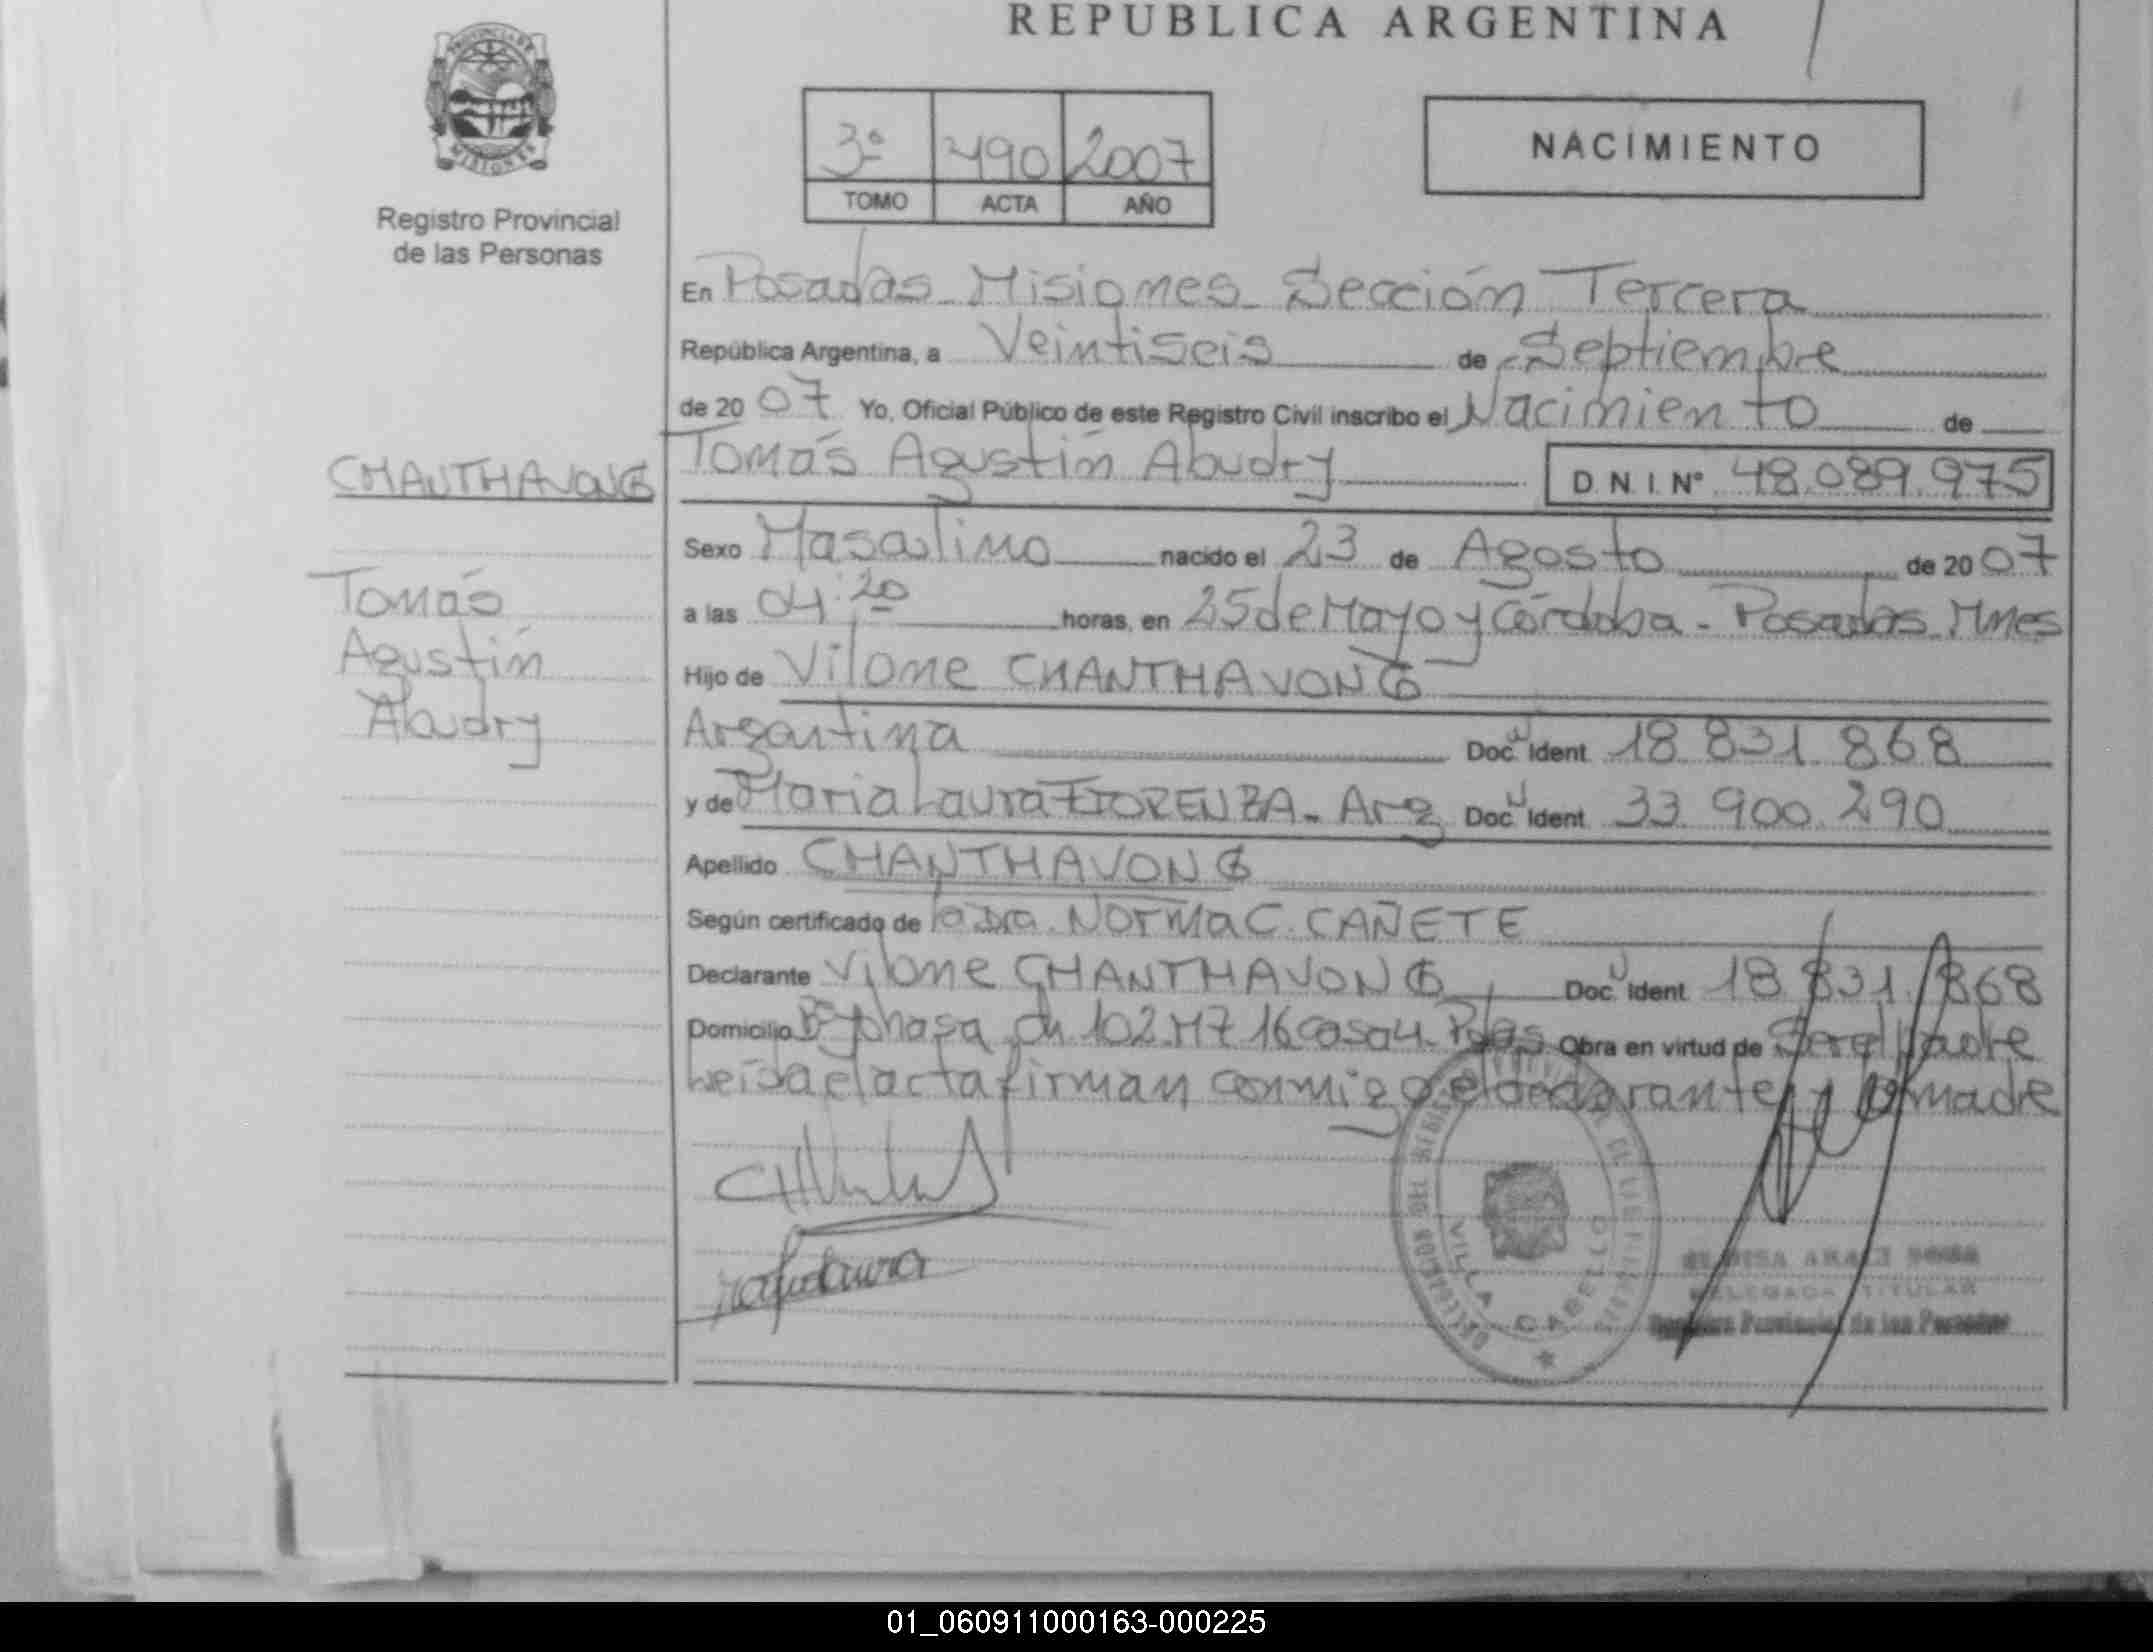 REPUBLICA ARGENTINA
PROVINCIA DE
MISIONES
Registro Provincial
de las Personas
3ª 490 2007
TOMO ACTA AÑO
NACIMIENTO
En Posadas Misiones Sección Tercera
República Argentina, a Veintiseis de Septiembre
de 2007 Yo, Oficial Público de este Registro Civil inscribo el Nacimiento de
Tomás Agustín Abudry D.N.I. Nº 48.089.975
CHANTHAVONG
Tomás
Agustín
Abudry
Sexo Masculino nacido el 23 de Agosto de 2007
a las 04:20 horas, en 25 de Mayo y Córdoba - Posadas Mnes
Hijo de Vilone CHANTHAVONG
Argentina Doc. Ident. 18 831 868
y de Maria Laura FIORENZA - Arg Doc. Ident. 33 900 290
Apellido CHANTHAVONG
Según certificado de la Dra. Norma C. CAÑETE
Declarante Vilone CHANTHAVONG Doc. Ident. 18 831 868
Domicilio Bº Yohasa ch 102 M7 16 casa 4 Pdas Obra en virtud de Ser el Padre
Leída el acta firman conmigo el declarante y la madre
DELEGACION DEL REGISTRO PROVINCIAL DE LAS PERSONAS
VILLA CABELLO
DELEGADA TITULAR
Registro Provincial de las Personas
01_060911000163-000225